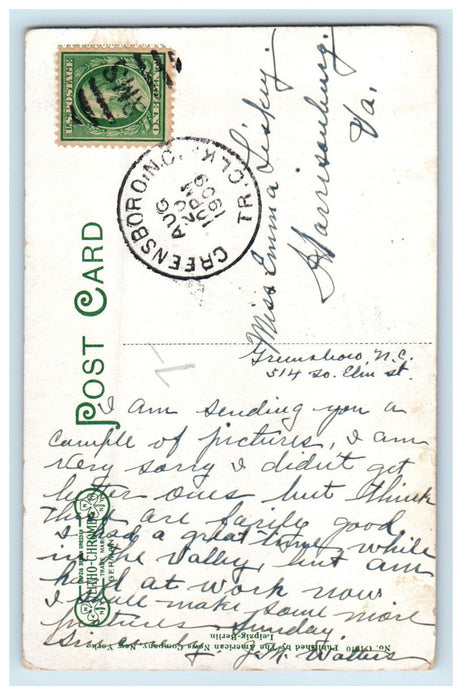 U.S. POSTAGE
ONE CENT
RMS
GREENSBORO, N.C. TR. CLK.
AUG
1909
POST CARD
Miss Emma Liskey.
Harrisonburg.
Va.
Greensboro, N.C.
514 So. Elm st.
I am sending you a
couple of pictures, I am
very sorry I didn't get
better ones but think
they are fairly good
I had a great time while
in the Valley, but am
hard at work now
I shall make some more
pictures Sunday.
Sincerely
LITHO-CHROME
TRADE MARK
GERMANY
No. Published by The American News Company, New York
Leipzig-Berlin